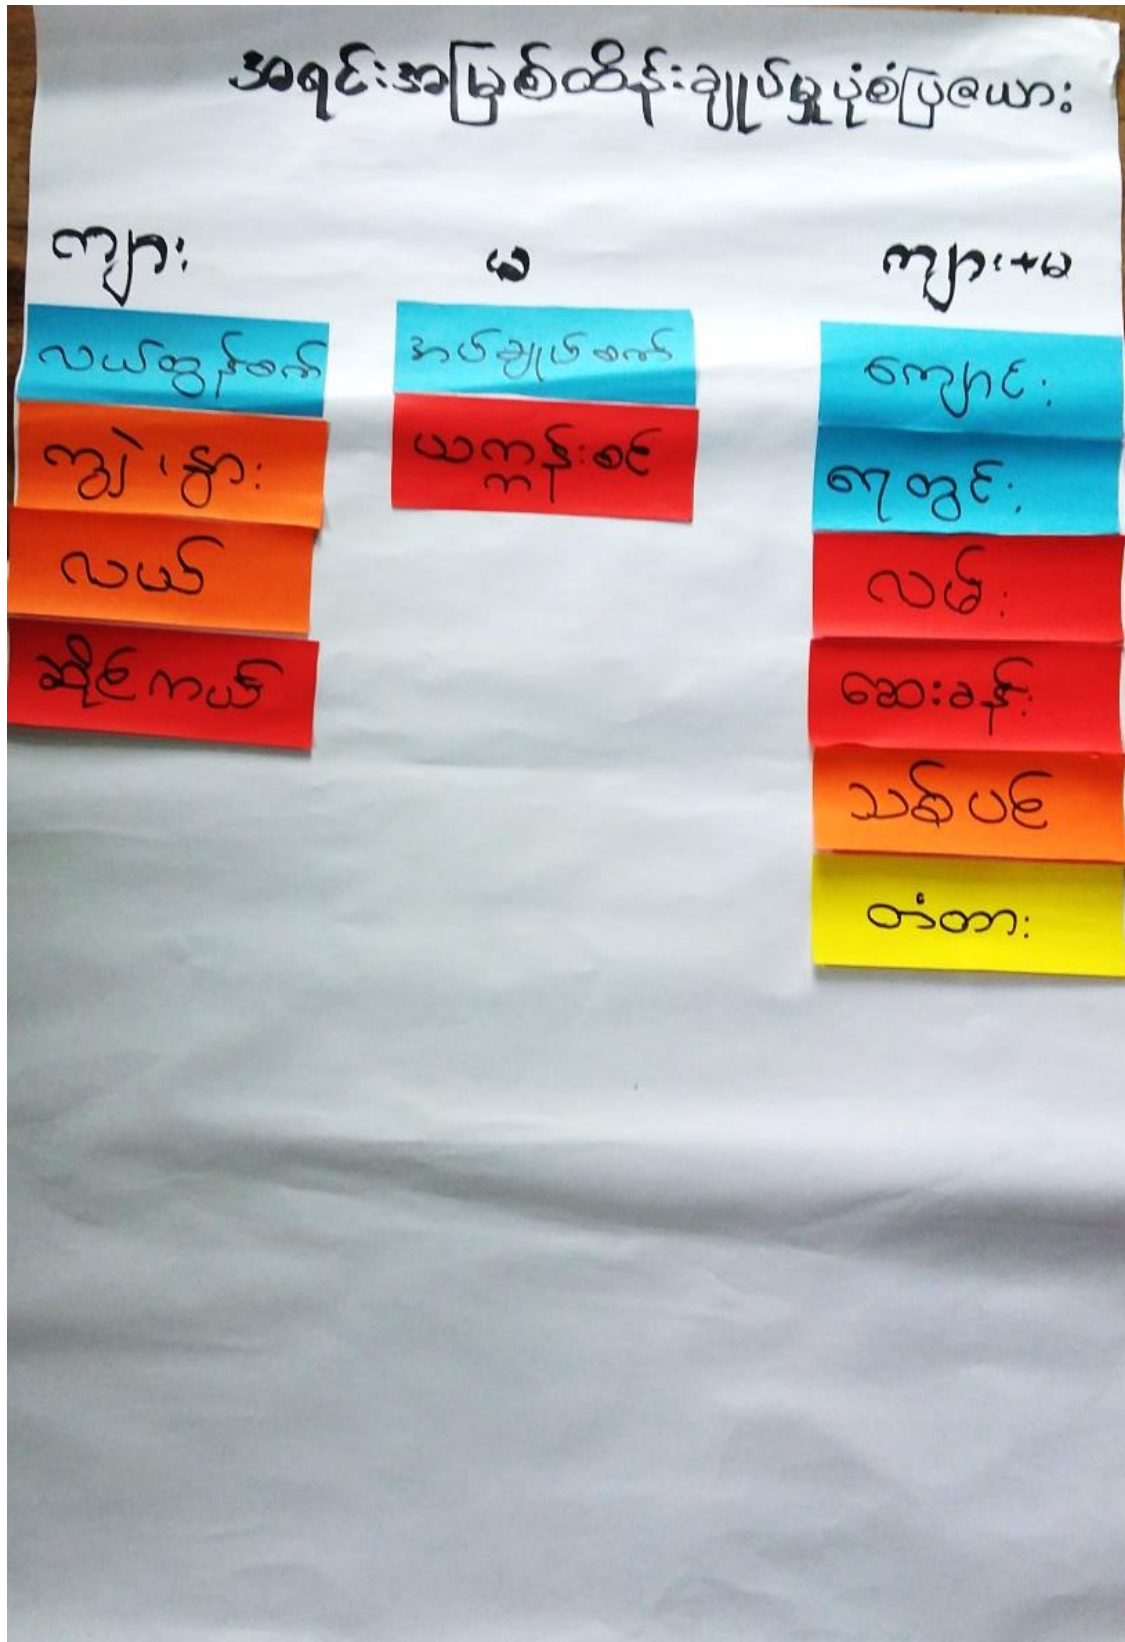 အရင်းအမြစ်ထိန်းချုပ်မှုပုံစံပြဇယား
ကျား
မ
ကျား+မ
လယ်ထွန်စက်
ကျွဲ၊နွား
လယ်
ဆိုင်ကယ်
အပ်ချုပ်စက်
ယက္ကန်းစင်
ကျောင်း
ရေတွင်း
လမ်း
ဆေးခန်း
သစ်ပင်
တံတား